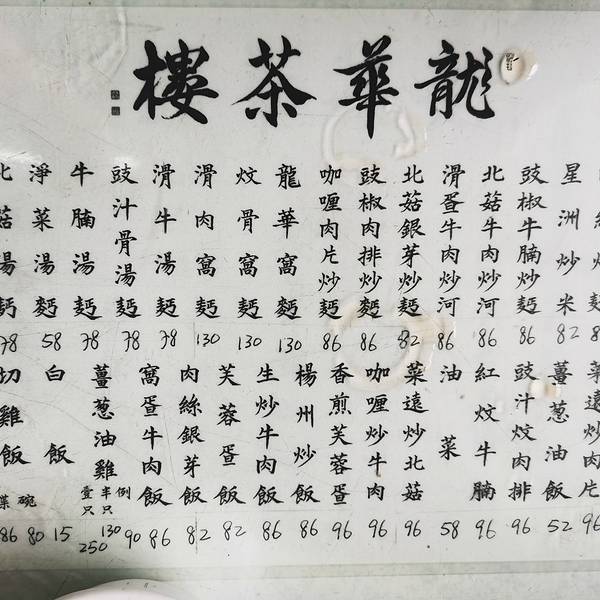 龍華茶樓
星洲炒米 82
豉椒牛腩炒麫 86
北菇牛肉炒河 86
滑蛋牛肉炒河 86
北菇銀芽炒麫 82
豉椒肉排炒麫 86
咖喱肉片炒麫 86
龍華窩麫 130
炆骨窩麫 130
滑肉窩麫 130
滑牛湯麫 78
豉汁骨湯麫 78
牛腩湯麫 78
淨菜湯麫 58
北菇湯麫 78
菜遠炒肉片 96
薑葱油飯 52
豉汁炆肉排 96
紅炆牛腩 96
油菜 58
菜遠炒北菇 96
咖喱炒牛肉 96
香煎芙蓉蛋 96
楊州炒飯 86
生炒牛肉飯 86
芙蓉蛋飯 82
肉絲銀芽飯 82
窩蛋牛肉飯 86
薑葱油雞 例 90 半只 130 壹只 250
白飯 15
切雞飯 碗 80 碟 86